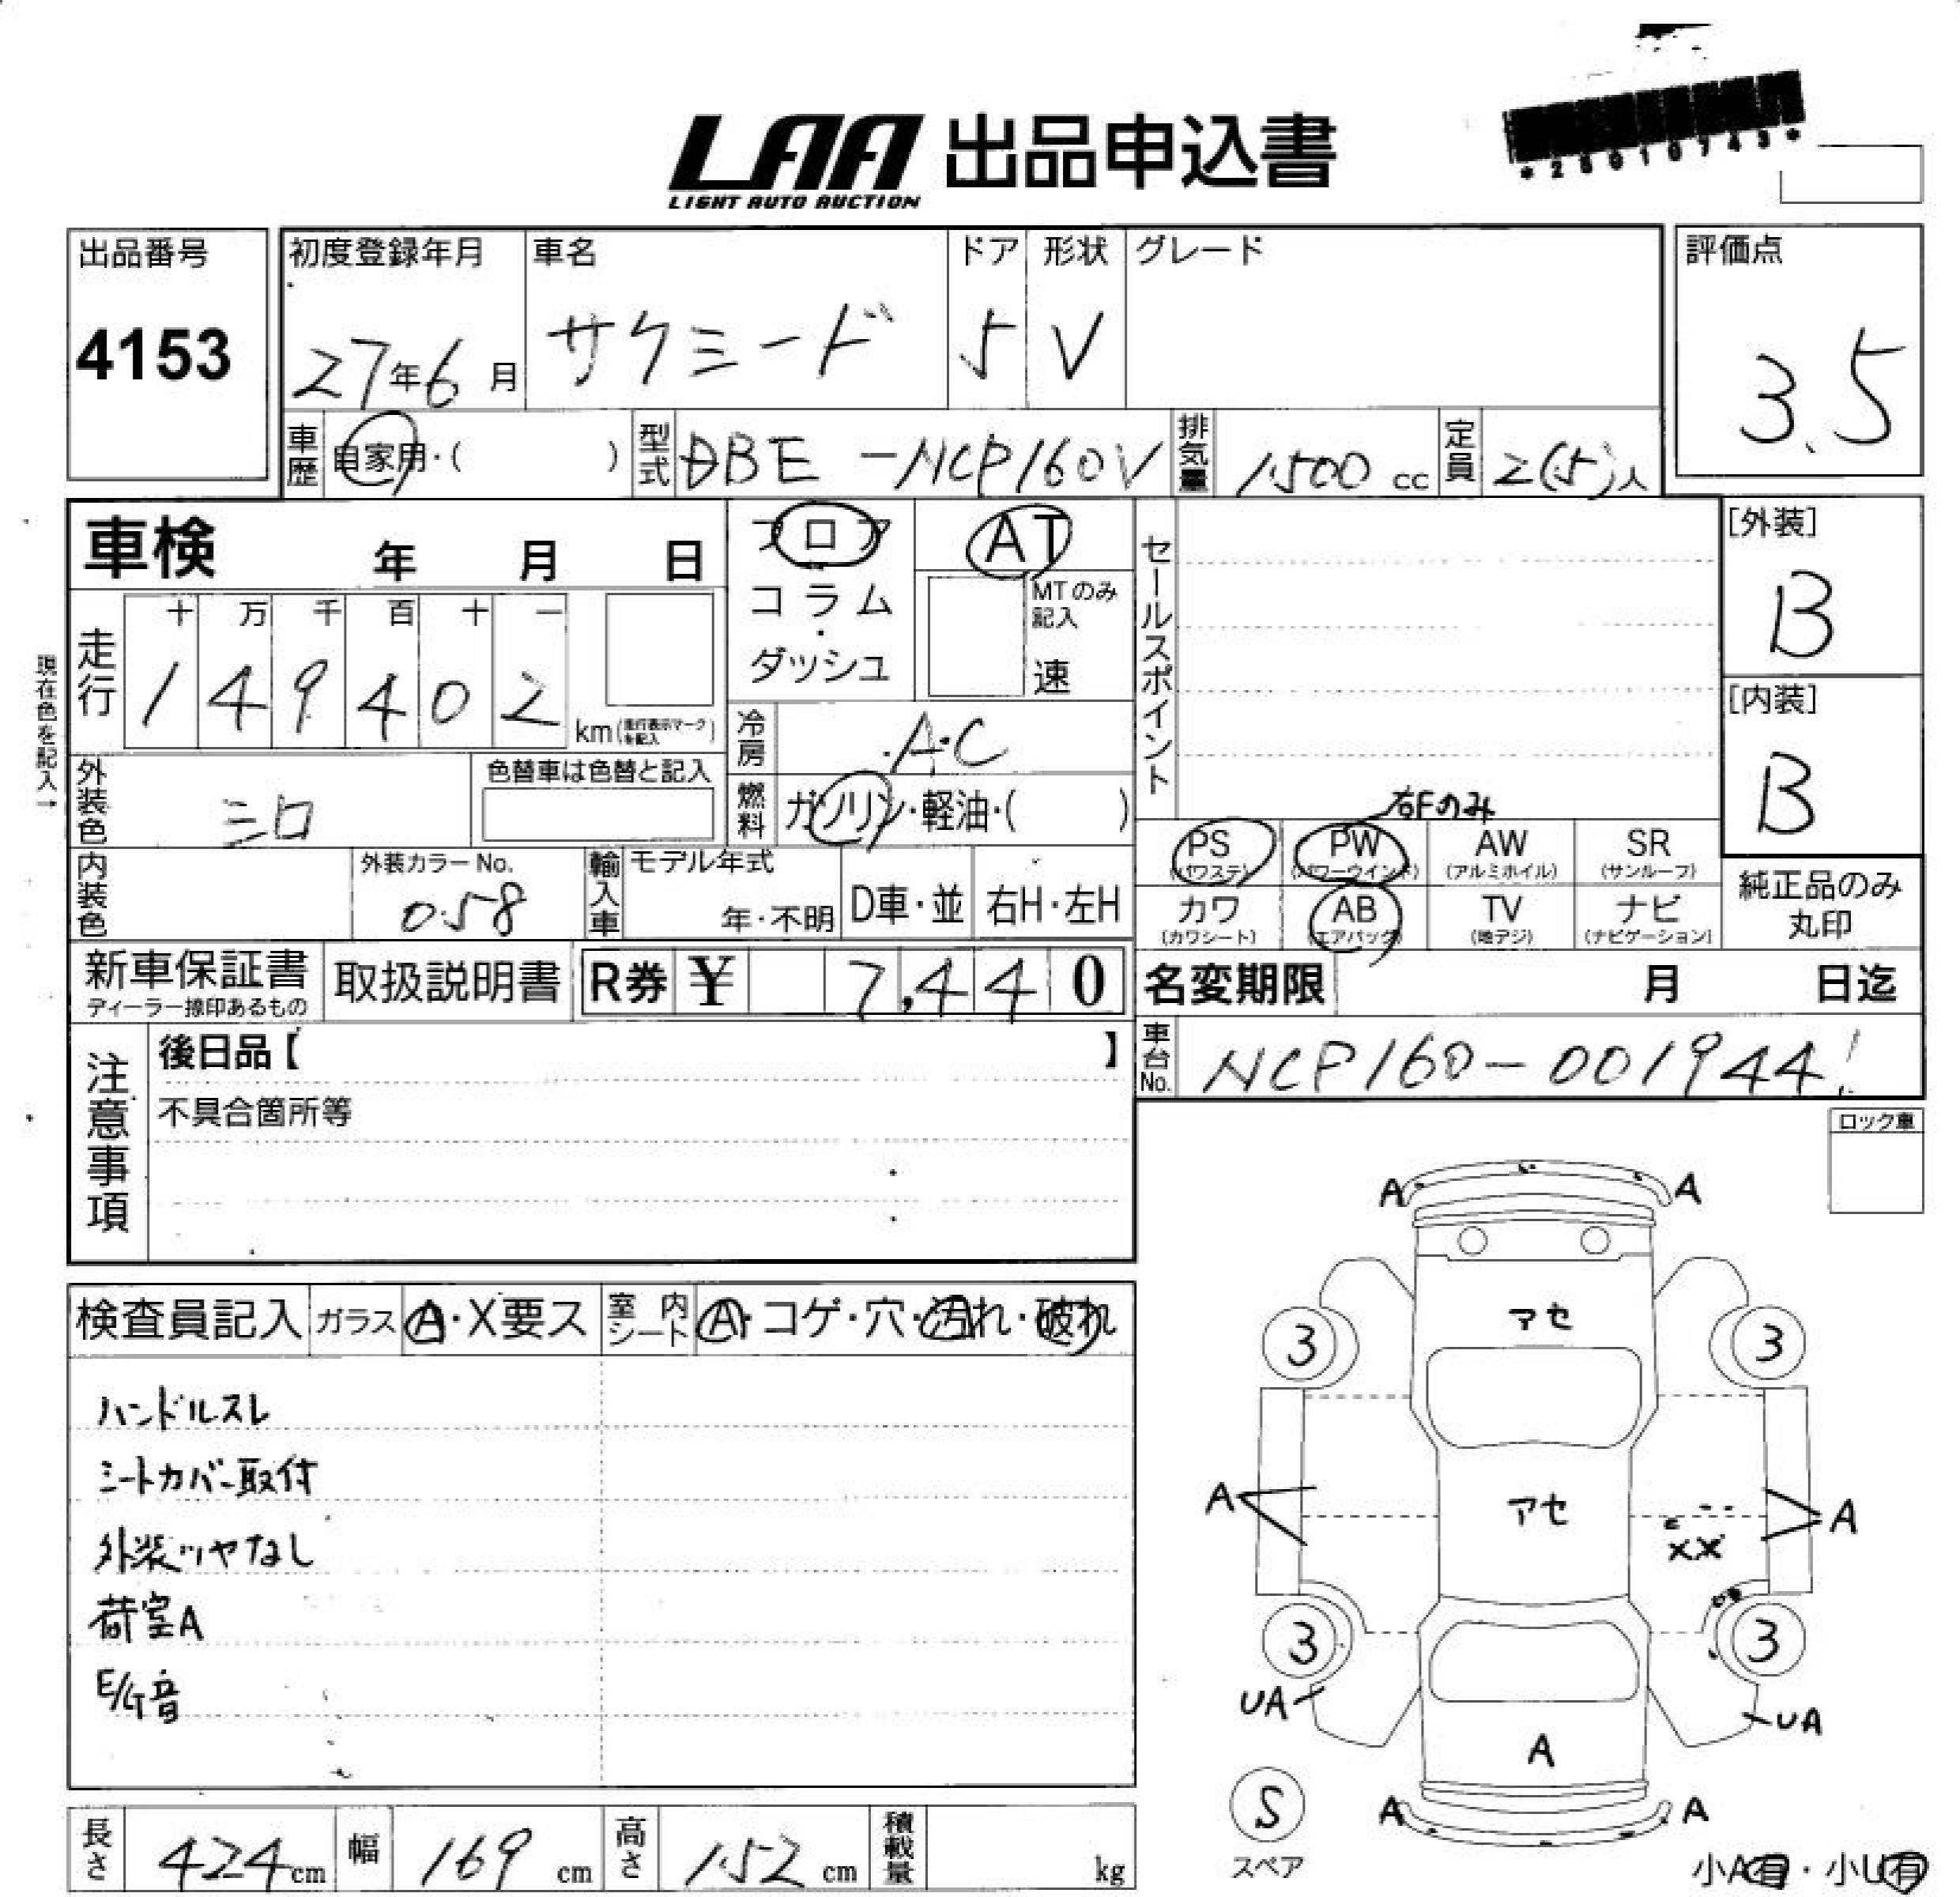 LAA 出品申込書
LIGHT AUTO AUCTION
出品番号
4153
初度登録年月
27年6月
車名
サクシード
ドア
5
形状
V
グレード
評価点
3.5
車歴 自家用・( )
型式 DBE-NCP160V
排気量 1500 cc
定員 2(5)人
車検 年 月 日
フロア
コラム
・
ダッシュ
AT
MTのみ
記入
速
セールスポイント
[外装]
B
[内装]
B
現在色を記入→
走行
十 万 千 百 十 一
1 4 9 4 0 2
km(走行表示マークを記入)
冷房 A・C
外装色 シロ
色替車は色替と記入
燃料 ガソリン・軽油・( )
右Fのみ
PS
(パワステ)
PW
(パワーウインド)
AW
(アルミホイル)
SR
(サンルーフ)
カワ
(カワシート)
AB
(エアバッグ)
TV
(地デジ)
ナビ
(ナビゲーション)
純正品のみ
丸印
内装色
外装カラーNo.
058
輸入車
モデル年式
年・不明
D車・並
右H・左H
新車保証書
ディーラー捺印あるもの
取扱説明書
R券 ¥ 7,440
名変期限 月 日迄
注意事項
後日品【 】
不具合箇所等
車台No. NCP160-001944
ロック車
検査員記入
ガラス A・X要ス
室内シート A・コゲ・穴・汚れ・破れ
ハンドルスレ
シートカバー取付
外装ツヤなし
荷室A
E/G音
A A
アセ
3 3
A アセ A
XX
3 3
UA UA
A
S
スペア
A A
小A有・小U有
長さ 424cm
幅 169 cm
高さ 152 cm
積載量 kg